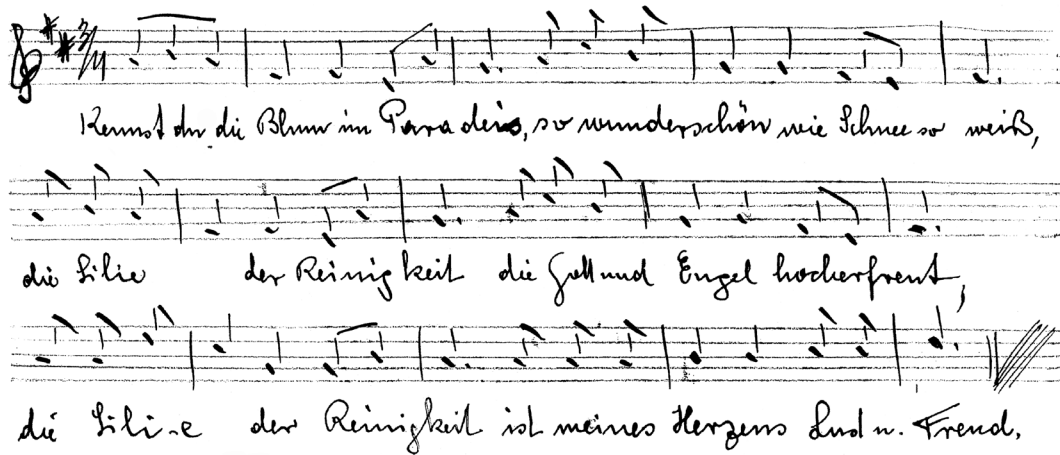 3/4
Kennst du die Blum im Paradeis, so wunderschön wie Schnee so weiß,
die Lilie der Reinigkeit die Gott und Engel hocherfreut,
die Lili-e der Reinigkeit ist meines Herzens Lust u. Freud.